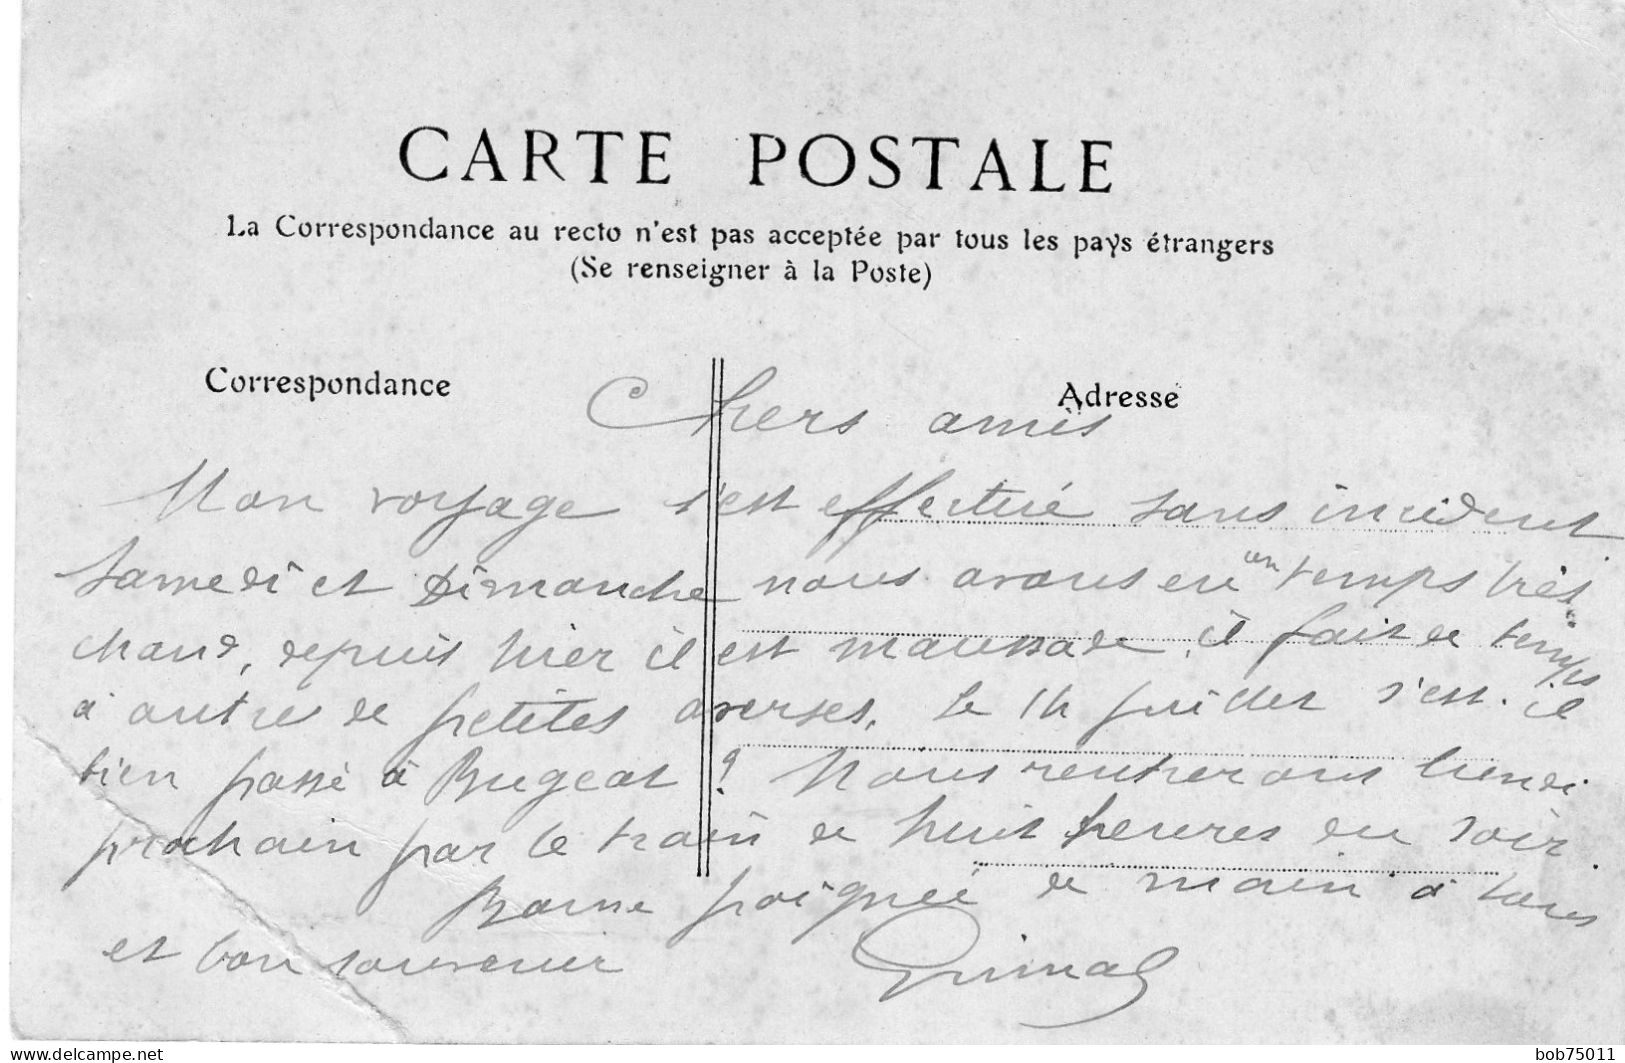 CARTE POSTALE
La Correspondance au recto n'est pas acceptée par tous les pays étrangers
(Se renseigner à la Poste)
Correspondance
Adresse
Chers amis
Mon voyage s'est effectué sans incident.
Samedi et Dimanche nous avons eu un temps très
chaud, depuis hier il est maussade, il fait de temps
à autre de petites averses. Le 14 juillet s'est-il
bien passé à Bugeat ? Nous rentrerons lundi
prochain par le train de huit heures du soir.
Bonne poignée de main à tous
et bon souvenir
Grimal
www.delcampe.net
bob75011